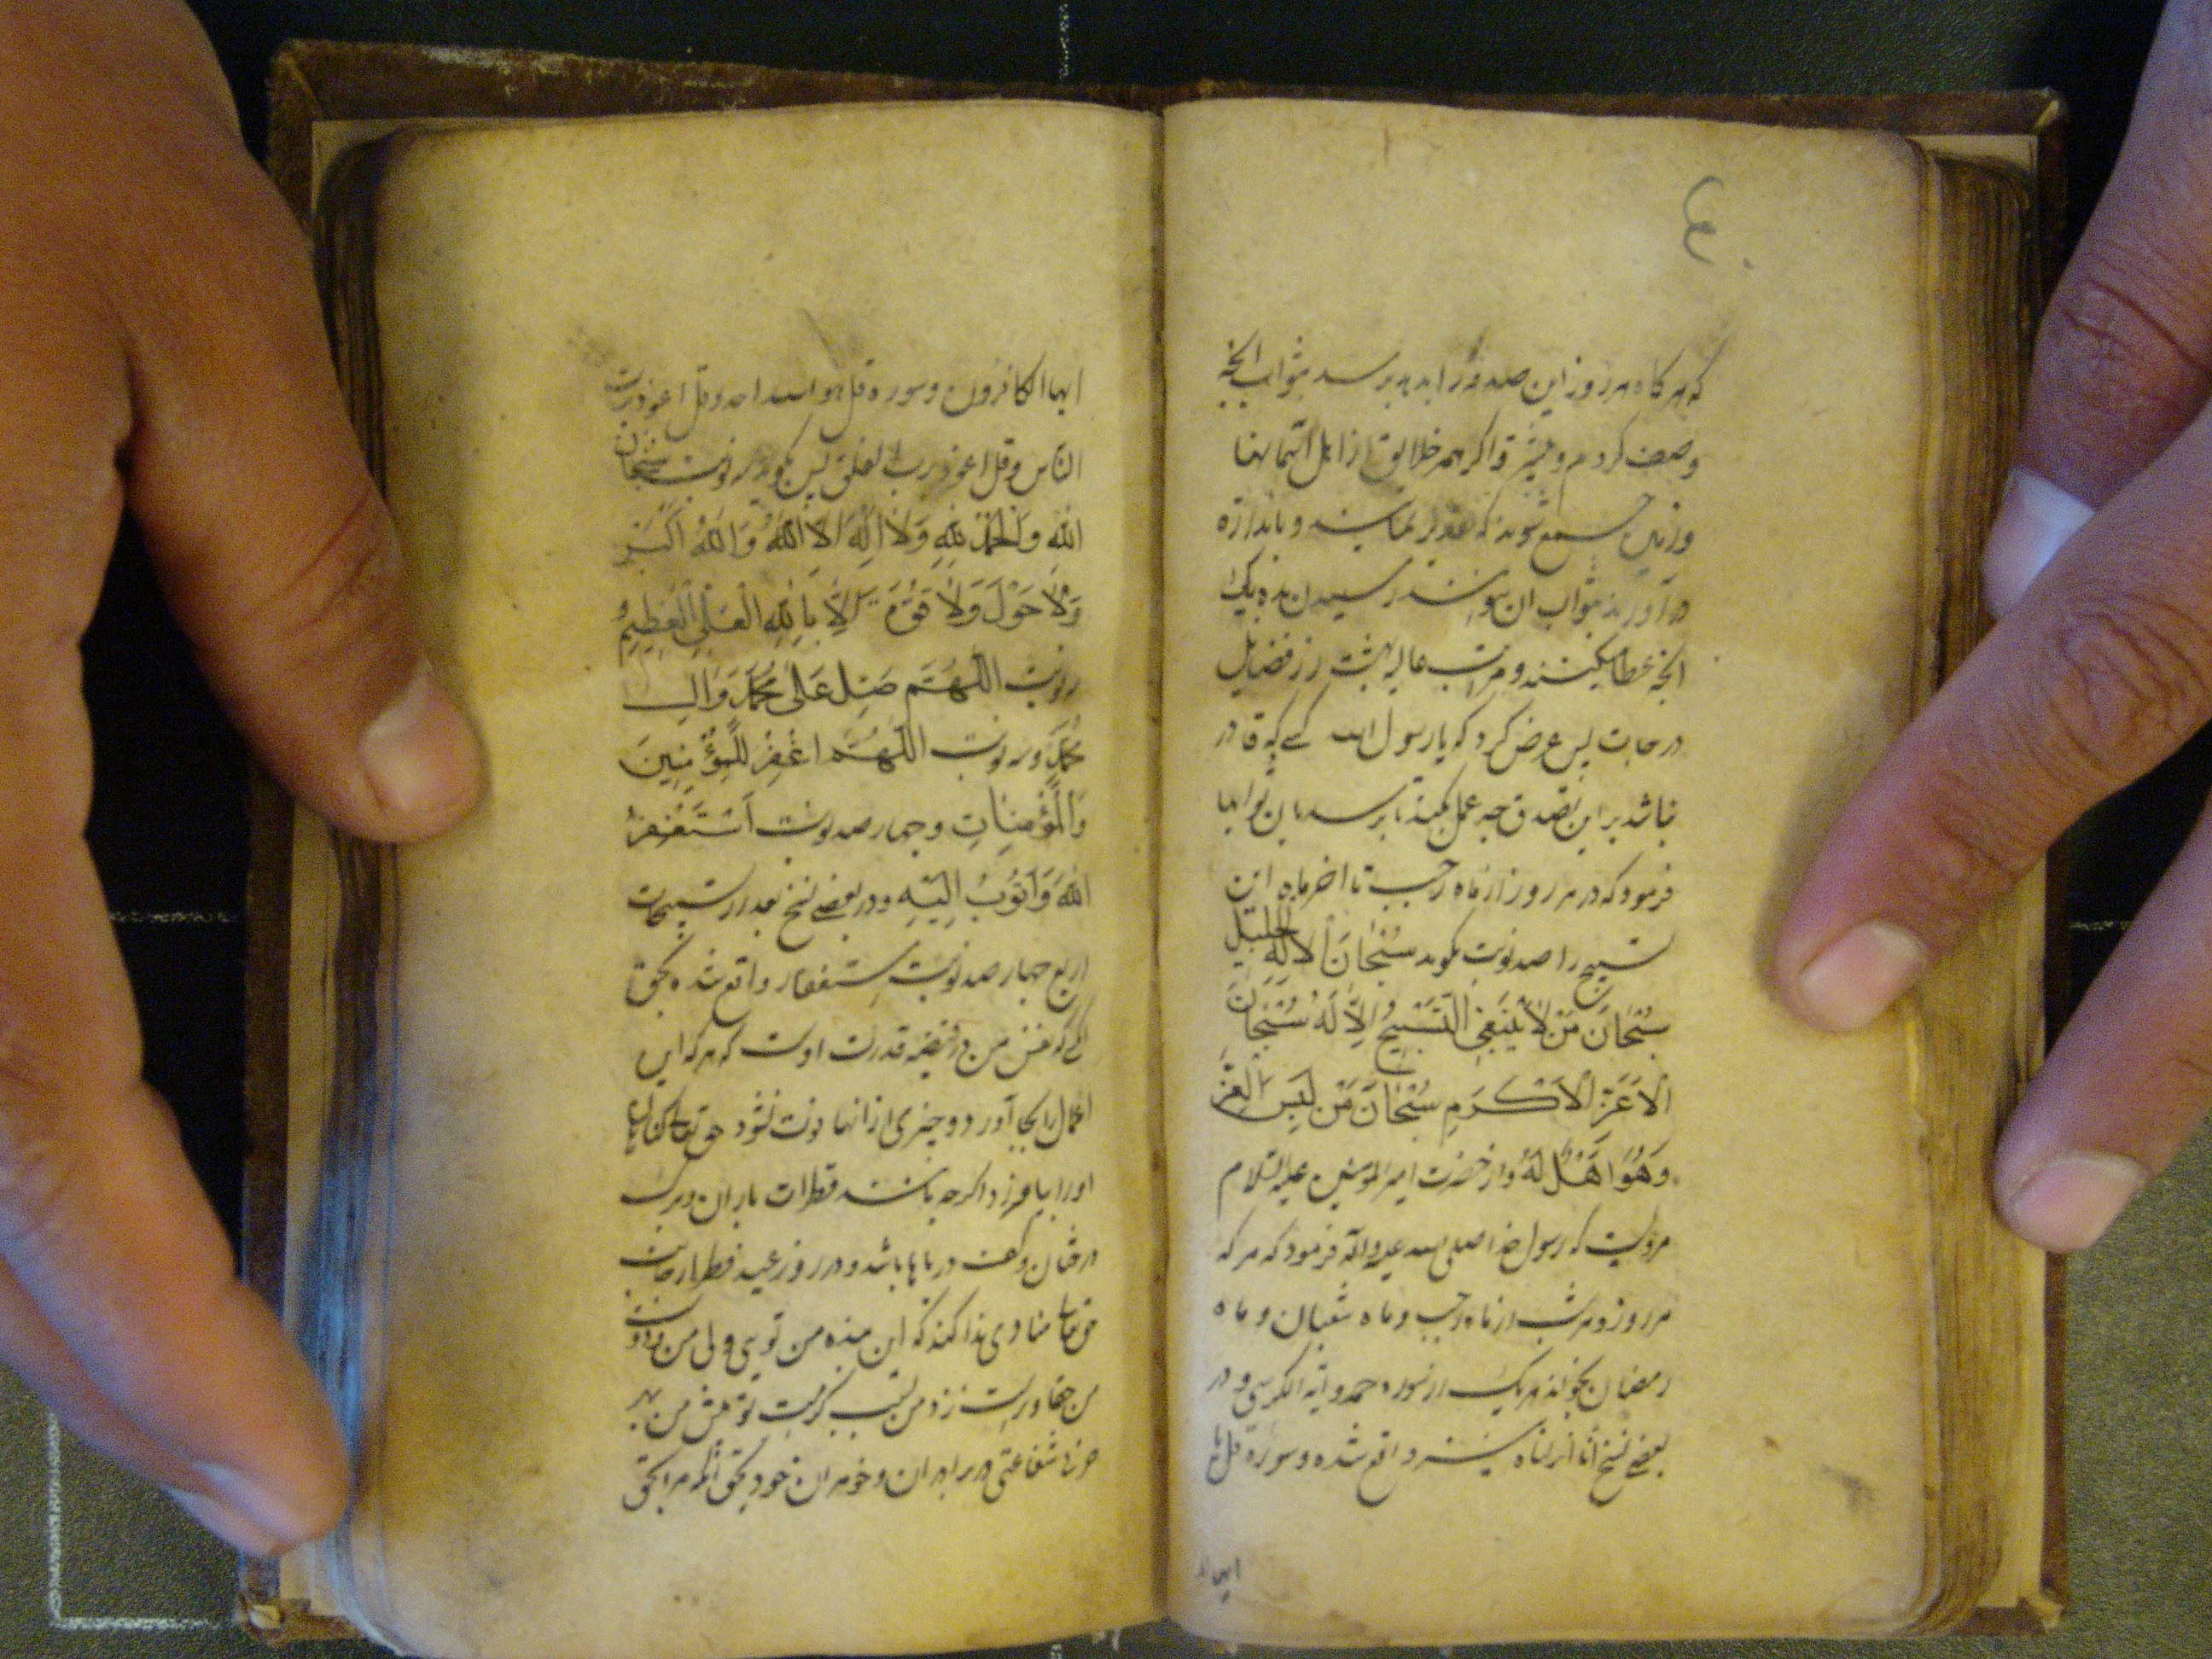 ۴۰
که هر گاه هر روز این صدقه را بدهد برسد بثواب آنچه
وصف کردم و بیشتر و اگر همه خلایق از اهل آسمانها
و زمین جمع شوند که تقدیر نمایند و باندازه
در آورند ثواب آن نتوانند رسیدن بده یک
آنچه عطا میکنند و مراتب عالیه بهشت از فضایل
درجات پس عرض کرد که یا رسول الله کسی که قادر
نباشد بر این تصدق چه عمل بکند تا برسد بان ثوابها
فرمود که در هر روز از ماه رجب تا آخر ماه این
تسبیح را صد نوبت بگوید سُبْحَانَ الاِلٰهِ الجَلِیلِ
سُبْحَانَ مَنْ لاٰ یَنْبَغِی التَّسْبِیحُ اِلاّٰ لَهُ سُبْحَانَ
الاَعَزِّ الاَکْرَمِ سُبْحَانَ مَنْ لَبِسَ العِزَّ
وَهُوَ اَهْلٌ لَهُ و از حضرت امیر المؤمنین علیه السلام
مرویست که رسول خدا صلی الله علیه وآله فرمود که هر که
هر روز و هر شب از ماه رجب و ماه شعبان و ماه
رمضان بخواند هر یک از سوره حمد و آیة الکرسی و در
بعضی نسخ انا انزلناه نیز واقع شده و سوره قل یا
ایها ال
ایها الکافرون و سوره قل هو الله احد و قل اعوذ برب
الناس و قل اعوذ برب الفلق پس بگوید سه نوبت سُبْحَانَ
اللهِ وَالْحَمْدُ لِلّٰهِ وَلاٰ اِلٰهَ اِلاَّ اللهُ وَاللهُ اَکْبَرُ
وَلاٰ حَوْلَ وَلاٰ قُوَّةَ اِلاّٰ بِاللهِ الْعَلِیِّ الْعَظِیمِ و
نوبت اللّٰهُمَّ صَلِّ عَلیٰ مُحَمَّدٍ وَآلِ
مُحَمَّدٍ و سه نوبت اللّٰهُمَّ اغْفِرْ لِلْمُؤْمِنِینَ
وَالْمُؤْمِنَاتِ و چهار صد نوبت اَسْتَغْفِرُ
اللهَ وَاَتُوبُ اِلَیْهِ و در بعضی نسخ بعد از تسبیحات
اربع چهار صد نوبت استغفار واقع شده بحق
کسی که نفس من در قبضه قدرت اوست که هر که این
اعمال را بجا آورد و چیزی از آنها فوت نشود حق تعالی گناهان
او را بیامرزد اگرچه باشند قطرات باران و برگ
درختان و کف دریاها باشد و در روز عید فطر از جانب
حق تعالی منادی ندا کند که ای بنده من تویی ولی من و دوست
من حقا و تراست نزد من بسبب کرامت تو من بهر
حرفی شفاعتی در برادران و خواهران خود بحق آنکه مرا بحق